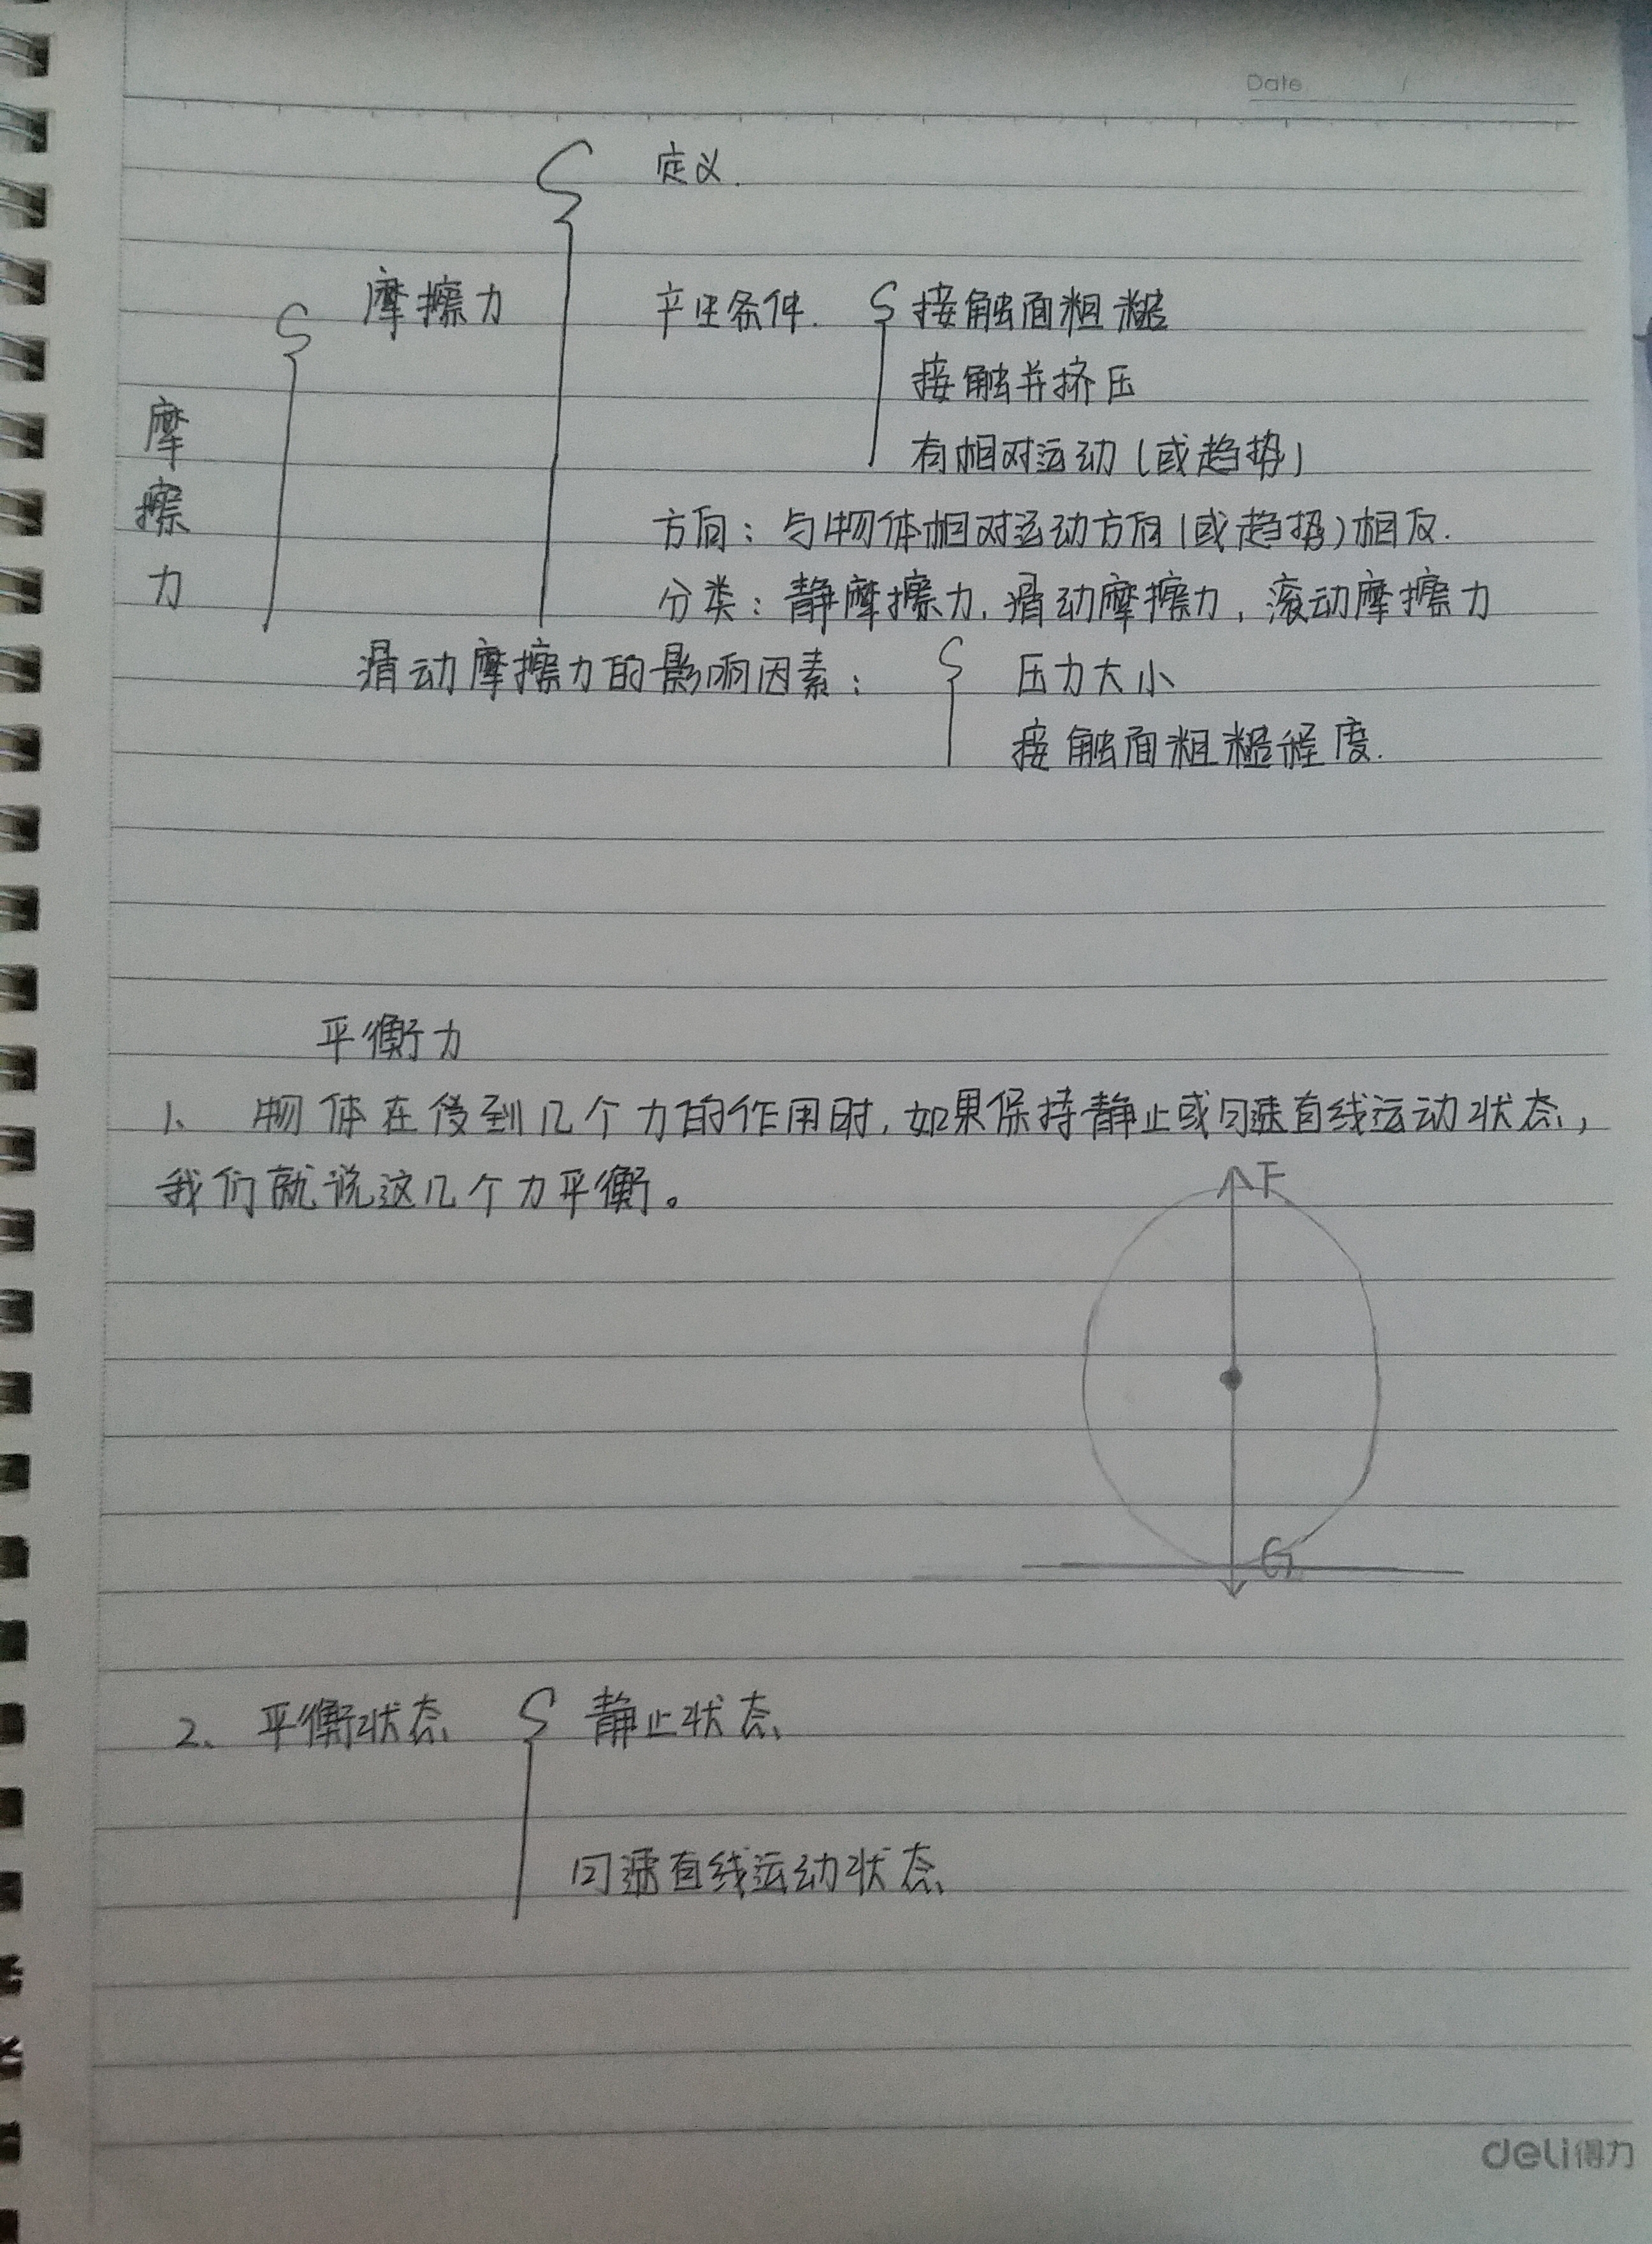 Date /
定义.
摩擦力 产生条件. 接触面粗糙
接触并挤压
摩擦力
有相对运动(或趋势)
方向:与物体相对运动方向(或趋势)相反.
分类:静摩擦力,滑动摩擦力,滚动摩擦力
滑动摩擦力的影响因素: 压力大小
接触面粗糙程度.
平衡力
1、物体在受到几个力的作用时,如果保持静止或匀速直线运动状态,
我们就说这几个力平衡。
F
G
2、平衡状态 静止状态
匀速直线运动状态
deli得力